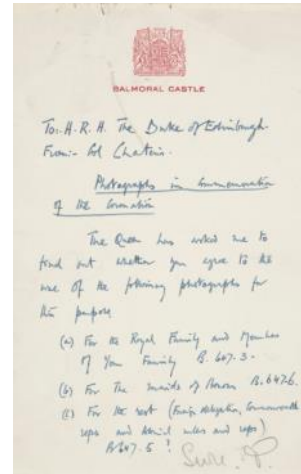 BALMORAL CASTLE
To:- H.R.H. The Duke of Edinburgh.
From:- Col Charteris.
Photographs in Commemoration
of the Coronation
The Queen has asked me to
find out whether you agree to the
use of the following photographs for
this purpose
(a) For the Royal Family and Members
of Your Family B. 647.3.
(b) For The Maids of Honour B.647.6.
(c) For the rest (Foreign delegation, Commonwealth
reps and rulers and reps)
B647.5!
Sure. P.